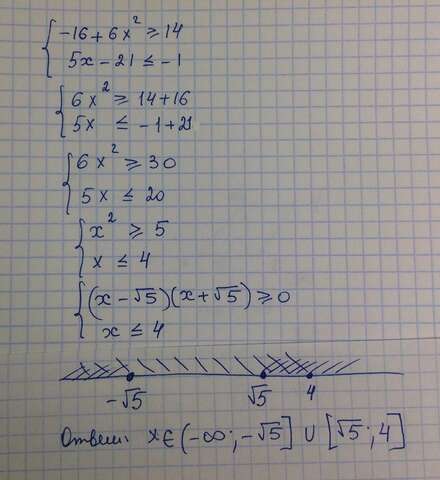 -16 + 6x² ≥ 14
5x - 21 ≤ -1
6x² ≥ 14+16
5x ≤ -1+21
6x² ≥ 30
5x ≤ 20
x² ≥ 5
x ≤ 4
(x - √5)(x + √5) ≥ 0
x ≤ 4
-√5 √5 4
Ответ: x ∈ (-∞; -√5] ∪ [√5; 4]